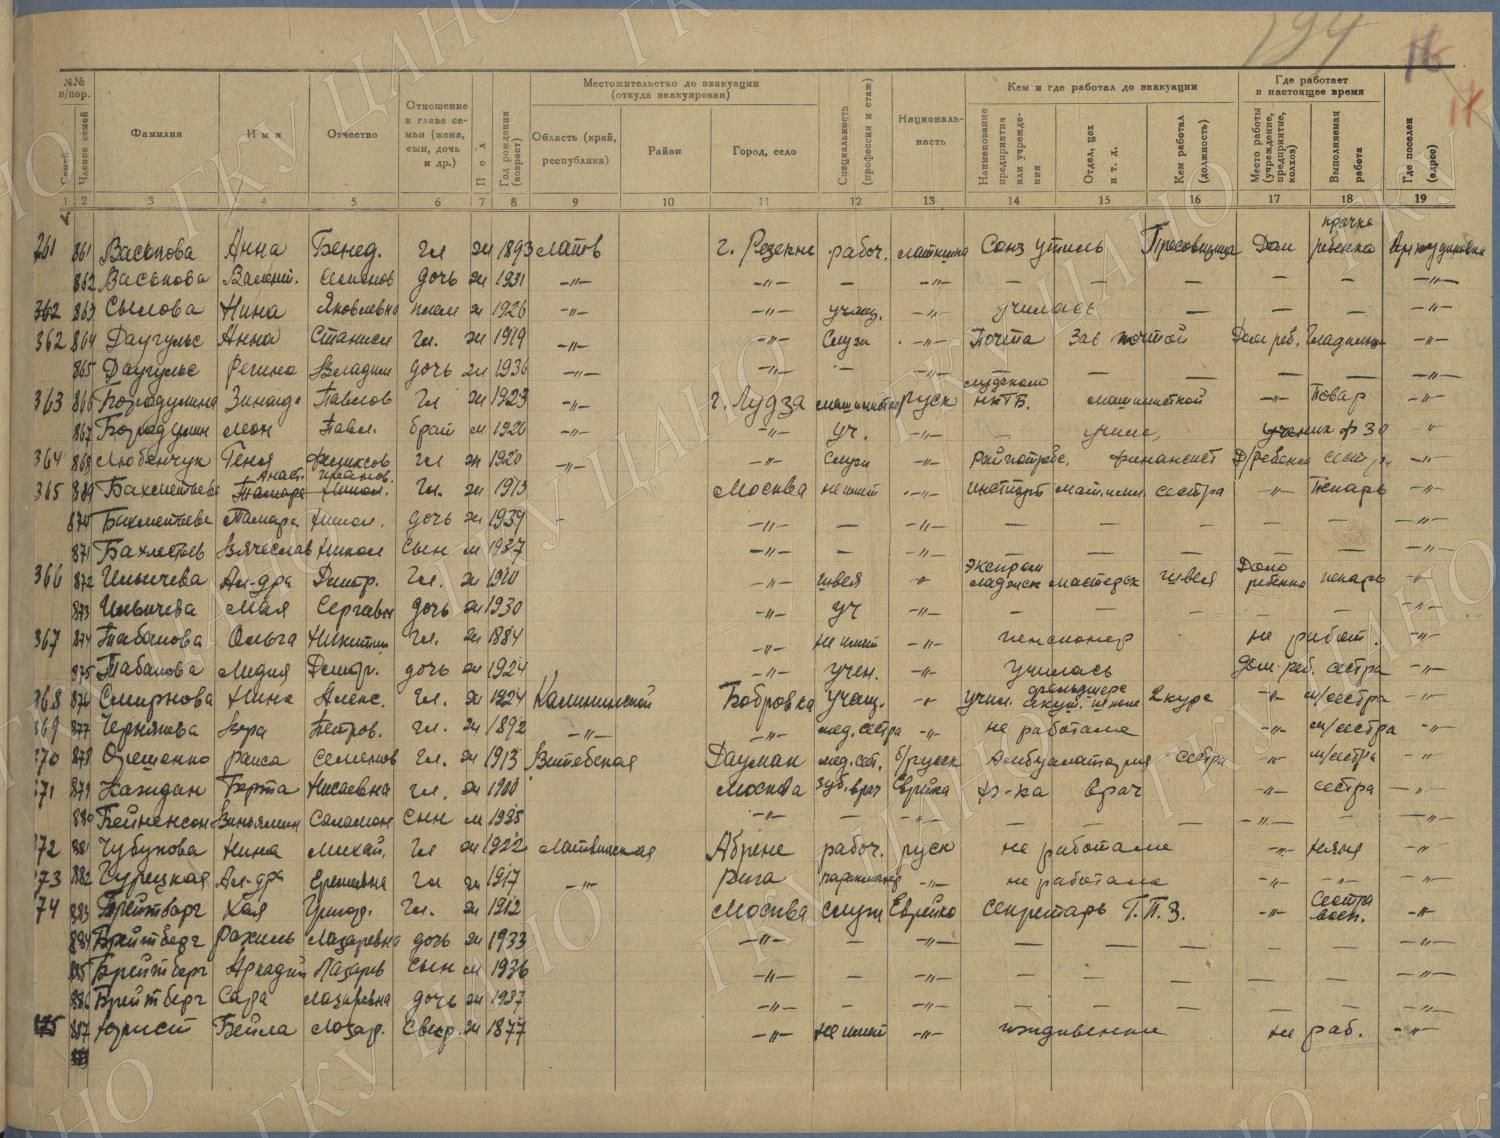 194 16
17
№№ п/пор.
Семей
Членов семей
Фамилия
Имя
Отчество
Отношение к главе семьи (жена, сын, дочь и др.)
Пол
Год рождения (возраст)
Местожительство до эвакуации (откуда эвакуирован)
Область (край, республика)
Район
Город, село
Специальность (профессия и стаж)
Националь-ность
Кем и где работал до эвакуации
Наименование предприятия или учреждения
Отдел, цех и т. д.
Кем работал (должность)
Где работает в настоящее время
Место работы (учреждение, предприятие, колхоз)
Выполняемая работа
Где поселен (адрес)
1 2 3 4 5 6 7 8 9 10 11 12 13 14 15 16 17 18 19
861 Васькова Анна Бенед. гл ж 1893 Латв г. Резекне рабоч. латышка Союз утиль Прасовщица Дом ребенка прачка
882 Васькова Валент. Семенов дочь ж 1931 -"- -"- - -"- - - - - - -"-
362 863 Сылова Нина Яковлевна плем ж 1926 -"- -"- учащ. -"- училась - - - -"-
362 864 Даугульс Анна Станисл гл. ж 1919 -"- -"- Служ -"- Почта Зав почтой Дом реб. Гладильщ -"-
865 Даугульс Регина Владим дочь ж 1936 -"- -"- - -"- - - - - - -"-
363 866 Бородулина Зинаида Павлов гл ж 1923 -"- г. Лудза машинистка руск НКГБ. машинисткой -"- Повар -"-
867 Бородулин Леон Павл. брат м 1920 -"- -"- уч. -"- учил. ученик ФЗО "
364 868 Любенчук Геня Феликсов гл ж 1920 -"- -"- служ -"- райпотребс. финансист Д/ребенка сестр. -"-
365 869 Бахметьева Анаст. Иванов. Гл. ж 1913 Москва не имеет -"- институт мат.млад. сестра -"- Пекарь -"-
870 Бахметьева Тамара Никол. дочь ж 1939 - -"- - -"- - - - - - -"-
871 Бахметьев Вячеслав Никол сын м 1937 -"- - -"- - - - - - -"-
366 872 Ильичева Ал-дра Дмитр. Гл. ж 1910 -"- швея -"- мастерск швея Дом ребенка пекарь -"-
873 Ильичева Мая Сергеевн дочь ж 1930 -"- уч -"- - - - - - -"-
367 874 Табакова Ольга Никитин гл. ж 1884 -"- не имеет -"- пенсионер не работ. -"-
875 Табакова Лидия Дмитр. дочь ж 1924 -"- учен. -"- училась дом. реб. сестра -"-
368 876 Смирнова Нина Алекс. гл. ж 1924 Калининской Бобровка учащ. -"- учил. фельдшерс акуш. школе 2 курс -"- м/сестра -"-
369 877 Чернякова Вера Петров. гл. ж 1892 -"- -"- мед. сестра -"- не работала -"- м/сестра -"-
370 878 Орешенко Раиса Семенов гл. ж 1913 Витебская мед. сест. б/русск Амбулатория сестра -"- м/сестра -"-
371 879 Нажидан Берта Исаевна гл. ж 1900 Москва зуб. врач Еврейка ф-ка врач -"- сестра -"-
880 Бейненсон Виньямин Саламон сын м 1935 -"- - -"- - - - -"- - -"-
372 881 Чубукова Нина Михай. гл ж 1922 Латвийская Абрене рабоч. руск не работала -"- няня -"-
373 882 Гурецкая Ал-дра Еремеевна гл ж 1917 -"- Рига парикмахер -"- не работала -"- -"- -"-
374 883 Брейтберг Хая Григор. Гл. ж 1912 Москва служ Еврейка секретарь Г.П.З. -"- Сестра восп. -"-
884 Брейтберг Рахиль Лазаревна дочь ж 1933 -"- - -"- - - - - - -"-
885 Брейтберг Аркадий Лазарев сын м 1936 -"- - -"- - - - - - -"-
886 Брейтберг Сара Лазаревна дочь ж 1937 -"- - -"- - - - - - -"-
375 887 Юрист Бейла Лазар. свекр. ж 1877 -"- не имеет -"- иждивенка не раб. -"-
ГКУ ЦАНО